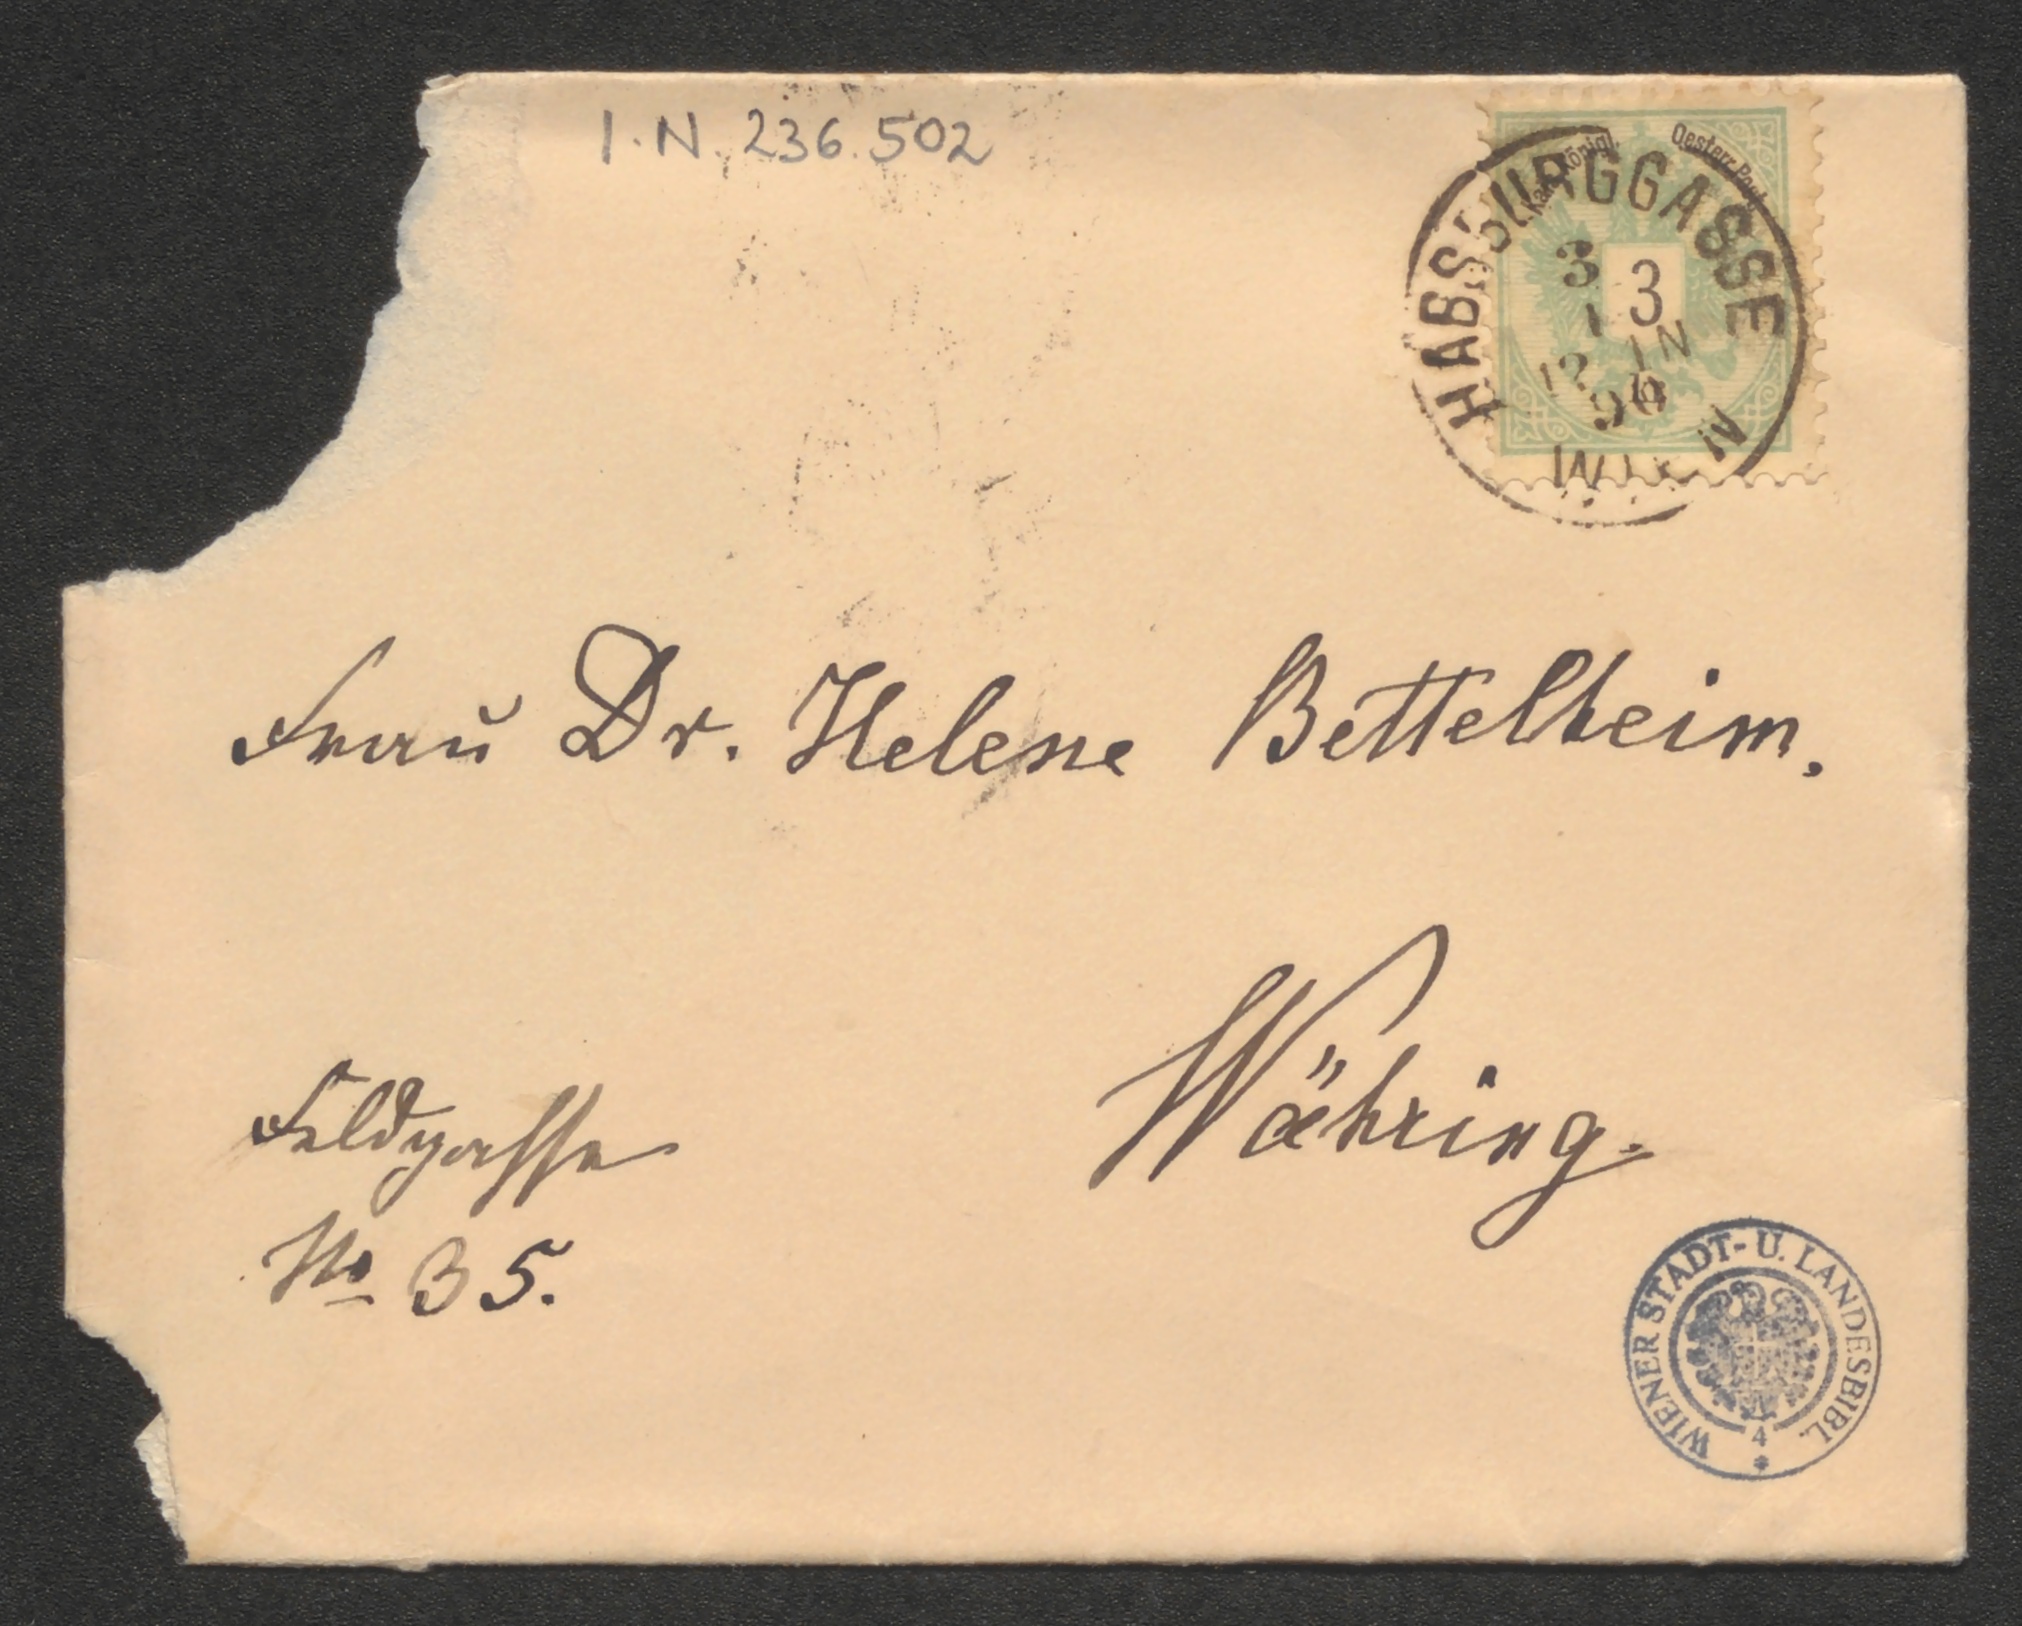 I.N. 236.502
Kais. Königl. Oesterr. Post
3
HABSBURGGASSE
3
1
12 1N
90
WIEN
Frau Dr. Helene Bettelheim.
Währing.
Feldgasse
No 35.
WIENER STADT- U. LANDESBIBL.
4